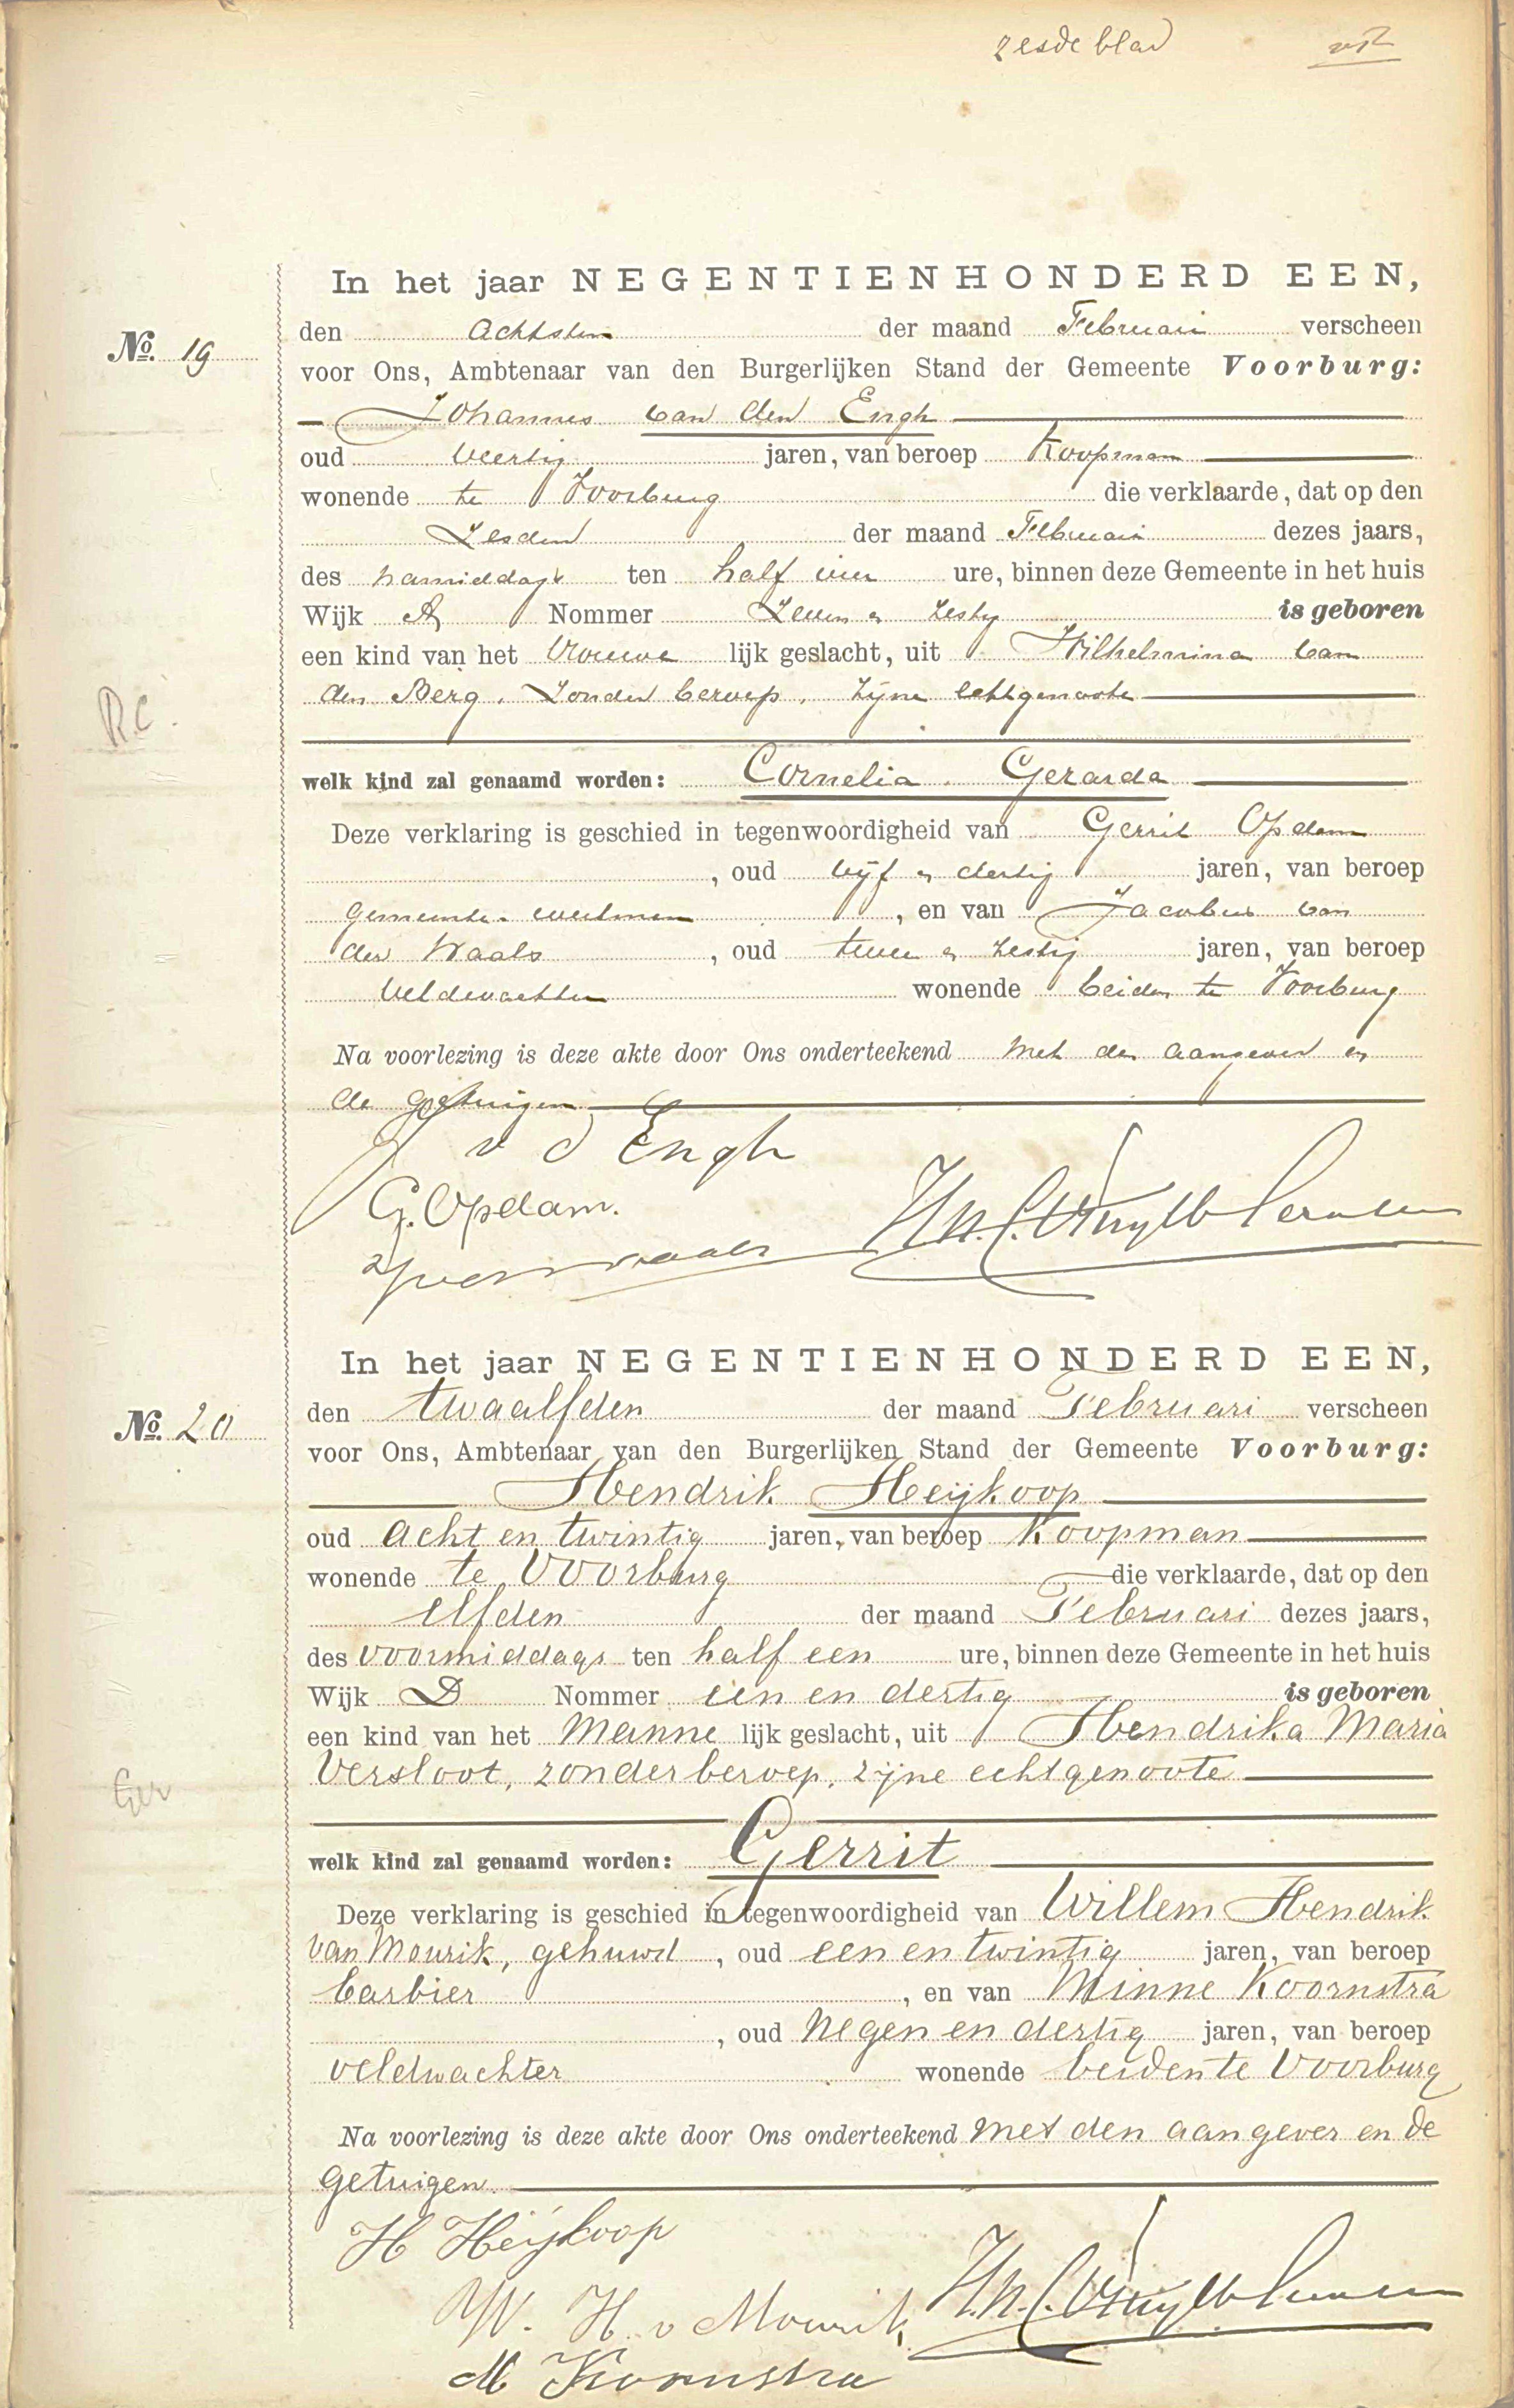 zesde blad
In het jaar NEGENTIENHONDERD EEN,
No. 19
den achtsten der maand Februari verscheen
voor Ons, Ambtenaar van den Burgerlijken Stand der Gemeente Voorburg:
Johannes van den Engh
oud veertig jaren, van beroep Koopman
wonende te Voorburg die verklaarde, dat op den
Zesden der maand Februari dezes jaars,
des namiddags ten half vier ure, binnen deze Gemeente in het huis
Wijk A Nommer Zeven en zestig is geboren
een kind van het Vrouwe lijk geslacht, uit Wilhelmina van
den Berg, Zonder beroep, zijne echtgenoote
R.C.
welk kind zal genaamd worden: Cornelia Gerarda
Deze verklaring is geschied in tegenwoordigheid van Gerrit Opdam
, oud vijf en dertig jaren, van beroep
gemeente-werkman, en van Jacobus van
der Waals, oud twee en zestig jaren, van beroep
Veldwachter wonende beiden te Voorburg
Na voorlezing is deze akte door Ons onderteekend met den aangever en
de getuigen
J v d Engh
G. Opdam.
In het jaar NEGENTIENHONDERD EEN,
No. 20
den twaalfden der maand Februari verscheen
voor Ons, Ambtenaar van den Burgerlijken Stand der Gemeente Voorburg:
Hendrik Heijkoop
oud acht en twintig jaren, van beroep Koopman
wonende te Voorburg die verklaarde, dat op den
elfden der maand Februari dezes jaars,
des voormiddags ten half een ure, binnen deze Gemeente in het huis
Wijk D Nommer een en dertig is geboren
een kind van het Manne lijk geslacht, uit Hendrika Maria
Versloot, zonder beroep, zijne echtgenoote
Ger
welk kind zal genaamd worden: Gerrit
Deze verklaring is geschied in tegenwoordigheid van Willem Hendrik
van Mourik, gehuwd, oud een en twintig jaren, van beroep
barbier, en van Minne Koornstra
, oud negen en dertig jaren, van beroep
veldwachter wonende beiden te Voorburg
Na voorlezing is deze akte door Ons onderteekend met den aangever en de
getuigen.
H Heijkoop
W. H. v Mourik
M Koornstra